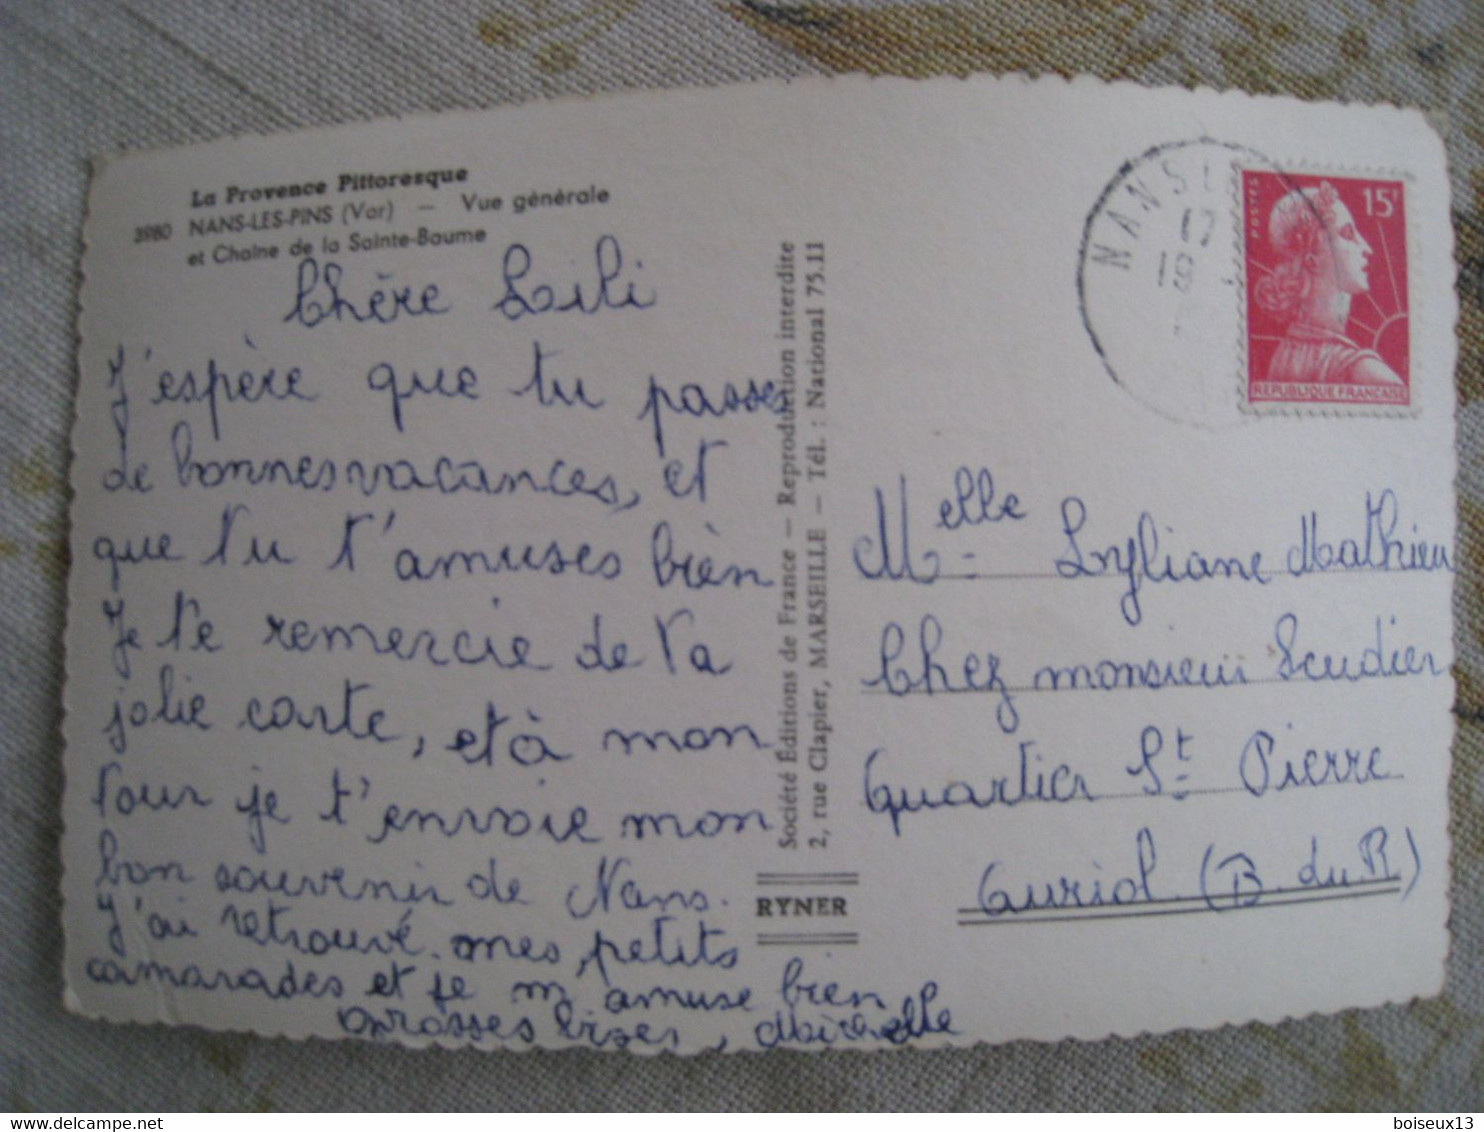 La Provence Pittoresque
3980 NANS-LES-PINS (Var) — Vue générale
et Chaîne de la Sainte-Baume
Chère Lili
J'espère que tu passes
de bonnes vacances, et
que tu t'amuses bien
Je te remercie de ta
jolie carte, et à mon
tour je t'envoie mon
bon souvenir de Nans.
J'ai retrouvé mes petits
camarades et je m'amuse bien
Grosses bises, Mireille
Société Éditions de France — Reproduction interdite
2, rue Clapier, MARSEILLE — Tél. : National 75.11
RYNER
NANS L
17
18
POSTES
15F
REPUBLIQUE FRANCAISE
Melle Lyliane Mathieu
Chez monsieur Scudier
Quartier St Pierre
Auriol (B. du R)
boiseux13